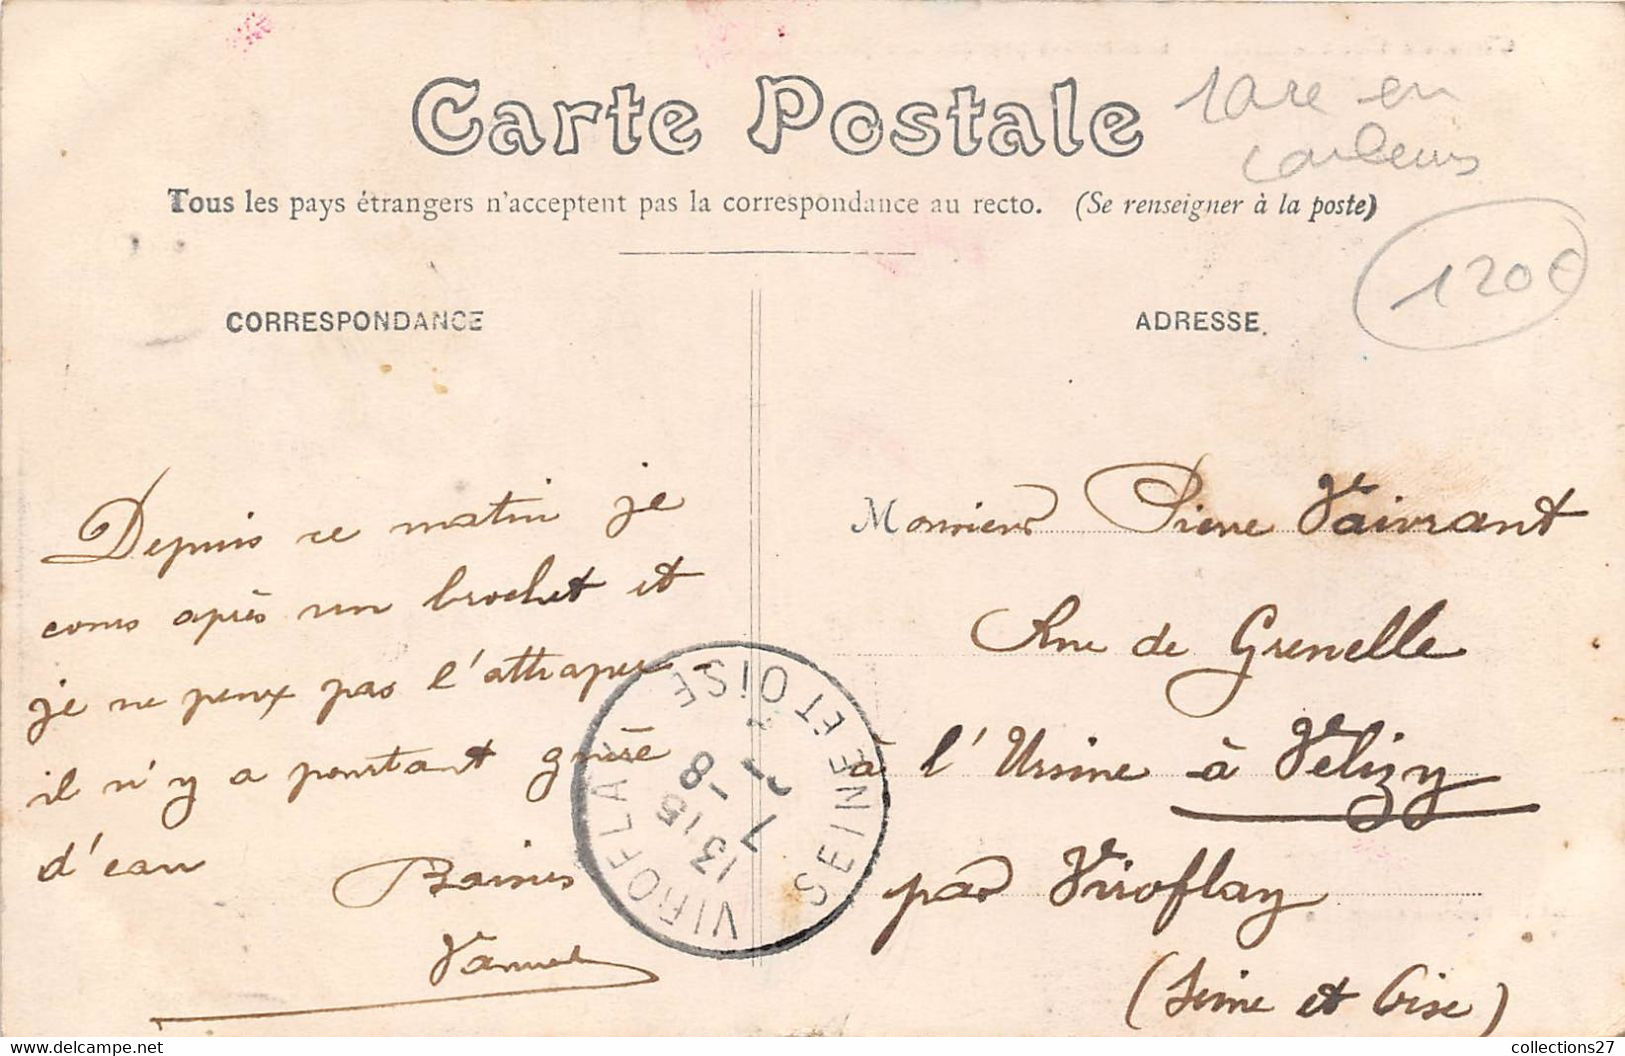 Carte Postale
rare en
couleurs
Tous les pays étrangers n'acceptent pas la correspondance au recto. (Se renseigner à la poste)
120€
CORRESPONDANCE
Depuis ce matin je
cours après un brochet et
je ne peux pas l'attraper
il n'y a pourtant guère
d'eau
Baisers
ADRESSE
Monsieur Pierre Vaivrant
Rue de Grenelle
à l'Ursine à Vélizy
par Viroflay
(Seine et Oise)
VIROFLAY
13 15
7 -8
SEINE ET OISE
collections27